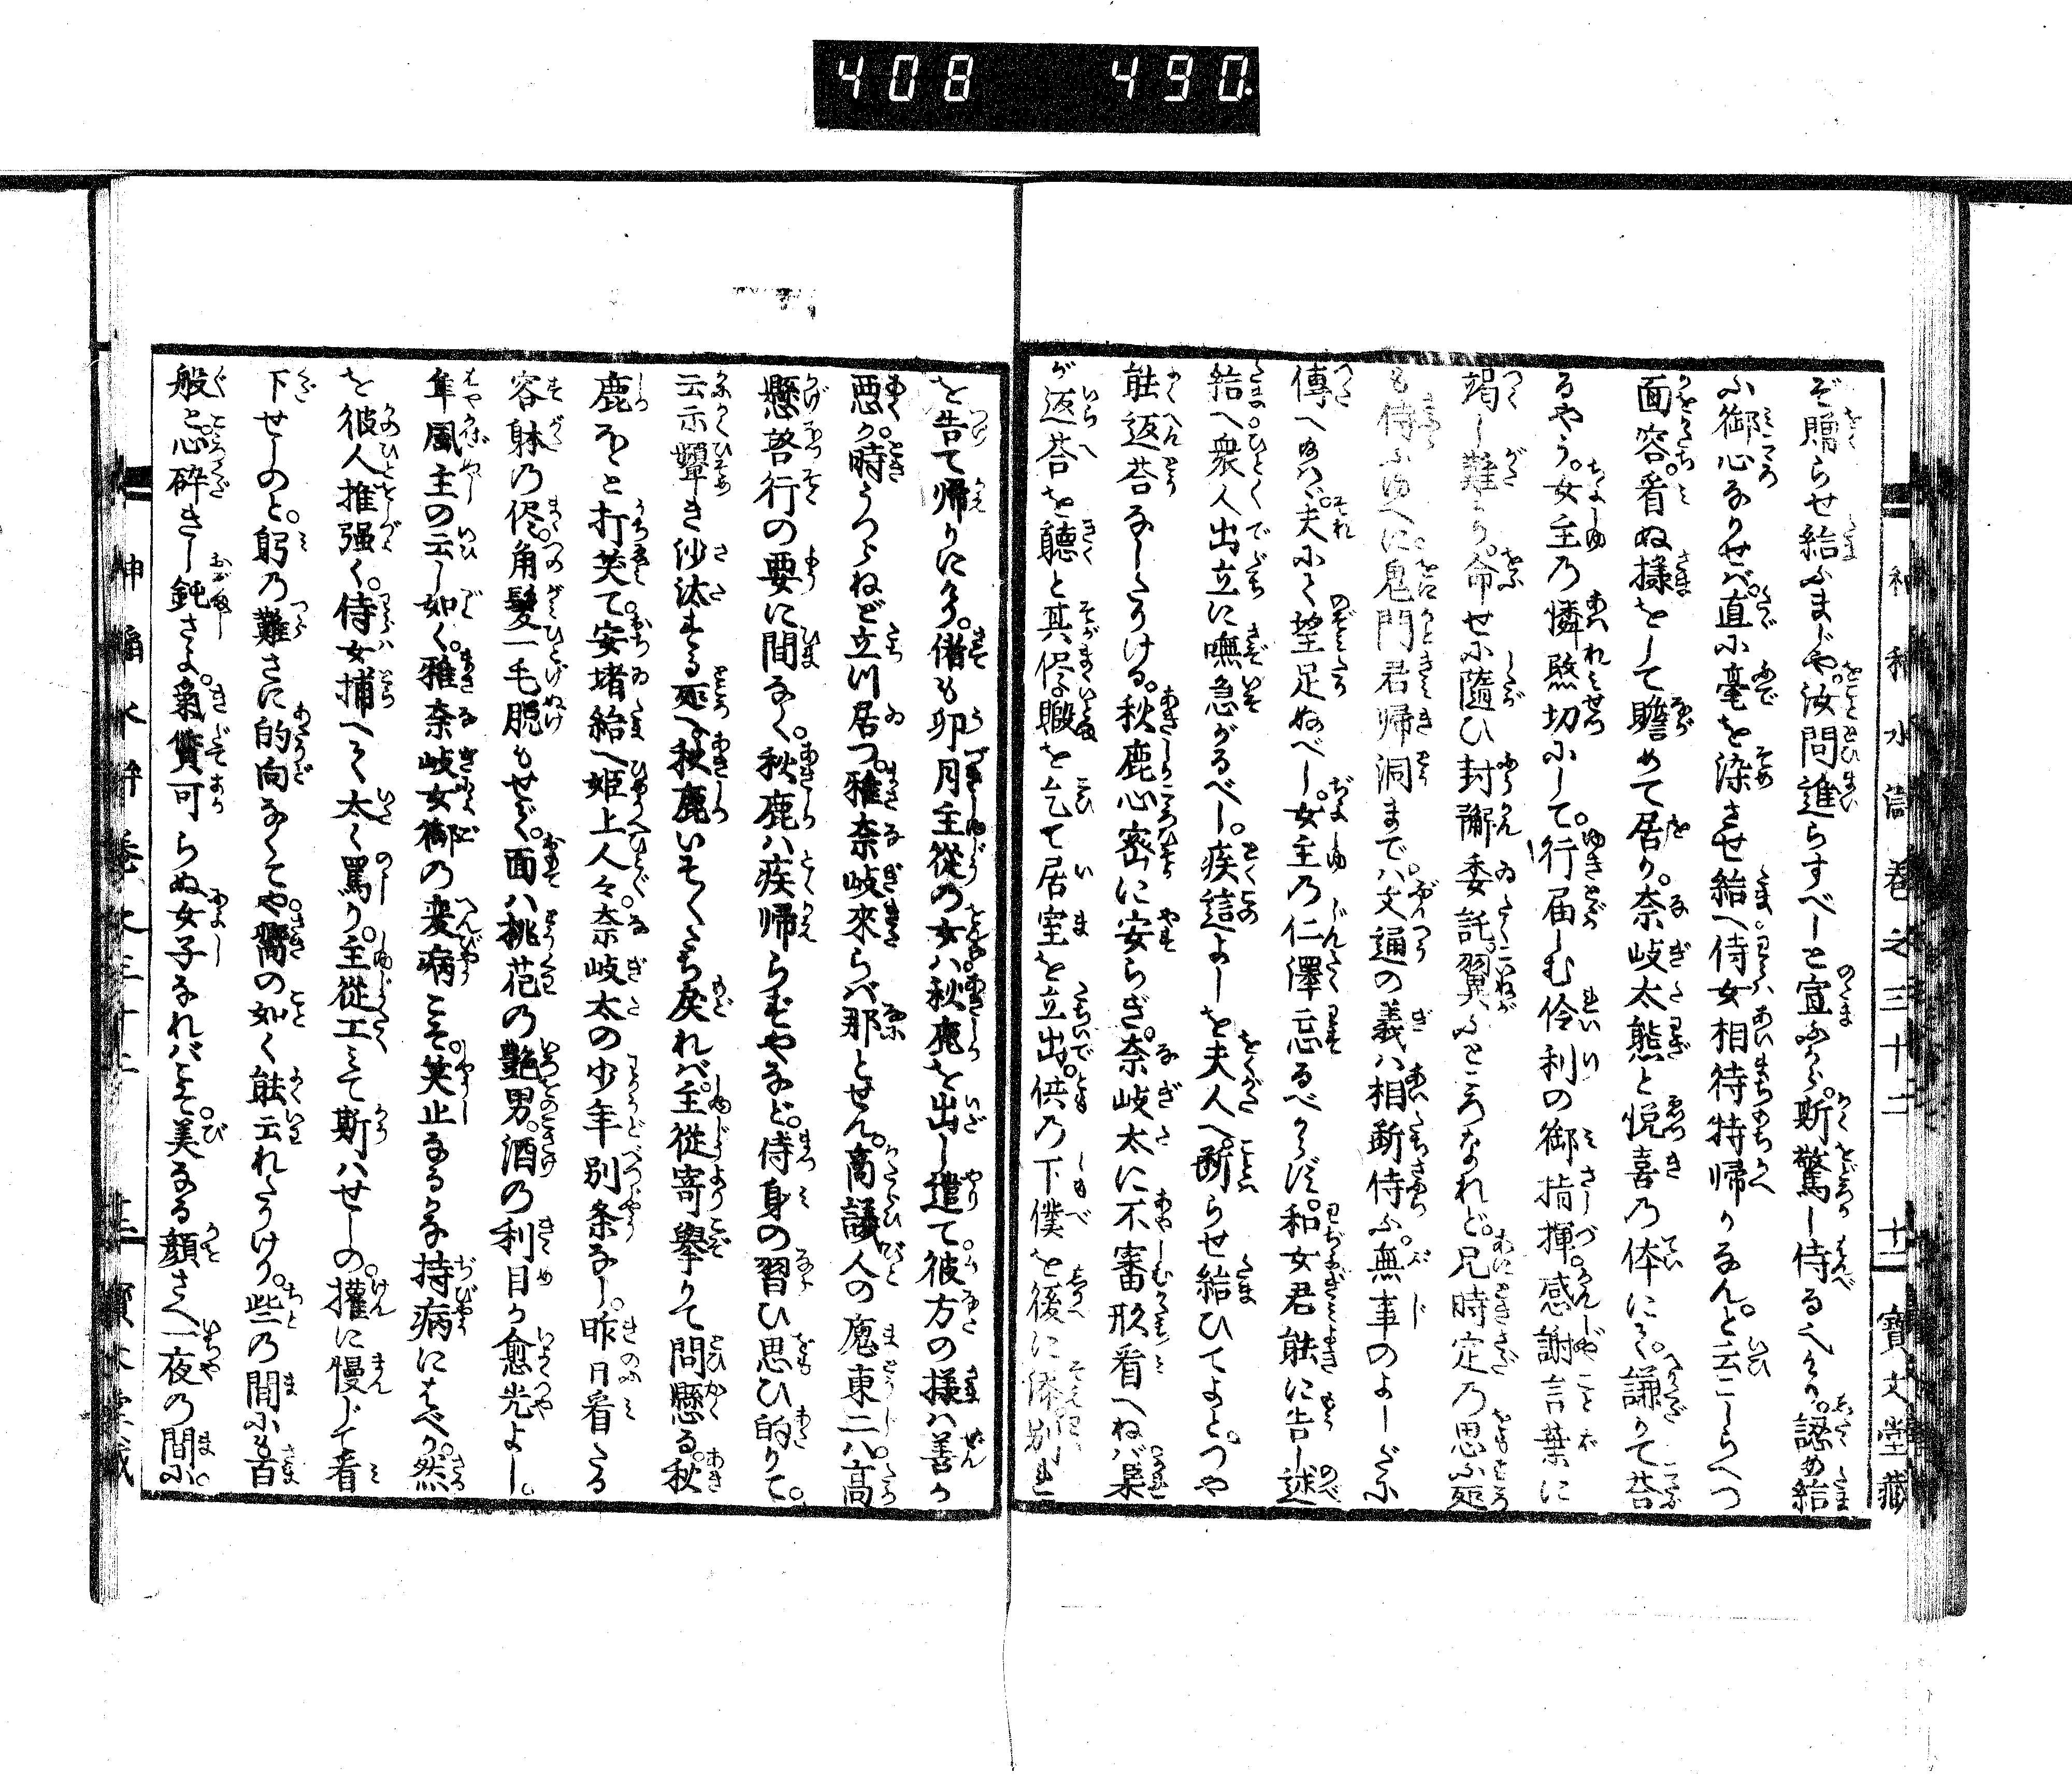 408 490.
ぞ贈らせ給ふまじや。汝問進らすべしと宣ふから。斯驚し侍るへり。認め給
ふ御心なりせば。直に毫を染させ給へ侍女相待特帰りなん。と云こしらへつ
面容。看ぬ様をして瞻めて居り。奈岐太熊と悦喜の体にて。謙りて荅
るやう。女主の憐愍切にして。行届しむ伶利の御指揮。感謝言葉に
竭し難し。命せに隨ひ封翰委託。翼ふところなれど。兄時定の思ふ処
も侍ふゆへに。鬼門君帰洞まで。ハ文通の義ハ相断侍ふ。無事のよしだに
傳へ給ハゞ。夫にて望足ぬべし。女主の仁澤忘るべからず。和女君能に告し述
給へ衆人出立に嘸急がるべし。疾這よしを夫人へ。断らせ給ひてよと。つや
能返荅なしたりける。秋鹿心密に安らぎ。奈岐太に不審形看へねば暴
が返荅を聽と其侭暇を乞て居室を立出。供の下僕を後に添。別
を告て帰りにけり。偖も卯月主從の女ハ秋鹿を出し遣て彼方の様ハ善か
悪か。時うつらねど立川居つ。雅奈岐來らば那とせん。商議人の應東二八高
懸荅行の要に間なく。秋鹿ハ疾帰らずやなど。侍身の習ひ思ひ的りて。
云示顰き沙汰する処へ。秋鹿いそ〱立戻れば。主從寄擧りて問懸る。秋
鹿ほゝと打笑て。安堵給へ姫上人々。奈岐太の少年別条なし。昨日看たる
容躰の侭。角髮一毛脱もせず。面ハ桃花の艶男。酒の利目か愈光よし。
隼風主の云し如く。雅奈岐女御の変病こそ。笑止なるかな持病にはべり。然
を彼人推强く。侍女捕へて太く罵り。主從エミて斯ハせしの。權に慢じて看
下せしのと。躬の難さに的向なくてや。嚮の如く能云れたりけり。些の間にも百
般と。心碎きし鈍さよ。氣質可らぬ女子なればこそ。美なる顔さへ一夜の間に
和稱水滸 卷之三十二 十一 寶文堂藏